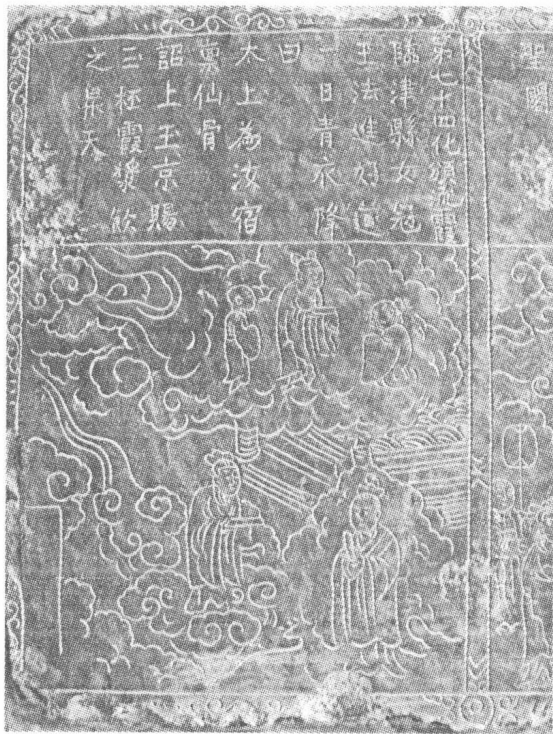 聖
第七十四化頒流霞
臨津縣女冠
王法進好道
一日青衣降
曰
太上為汝宿
稟仙骨
詔上玉京賜
三極霞漿飲
之昇天